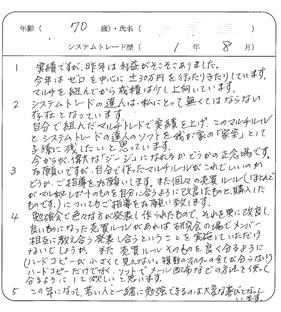 年齢( 70 歳)・氏名(
システムトレード歴( 1 年 8 月)
1 実績ですが、昨年は利益がそこそこありました。
今年はゼロを中心に±30万円を行ったり来たりしています。
マルチを組んでから成績は少し上向いています。
2 システムトレードの達人は、私にとって無くてはならない
存在となっています。
自分で組んだマルチトレードで実績を上げ、このマルチルール
とシステムトレードの達人のソフトを我が家の"家宝"として
子孫に残したいと思っています。
今からが、偉大な"ジージ"になれるかどうかの正念場です。
3 お願いですが、自分で作ったマルチルールがこれでいいのか
どうか、ご指導をお願いします。また個々の売買ルール(ほとんど
がマルチやレポートのものを自分に合うように改良したものと購入した
ものです)についてもご指導をお願い致します。
4 勉強会で色々な方が発表し作られたもので、それを更に改良し、
良いものになった売買ルールがあれば研究会の場でメンバー
相互に教え合う発表し合うということを実施していただけ
ないでしょうか。また売買ルールそのものを良く分るように
(ハードコピーが小さくて見えない。複数のフィルターの全てが分らない)
ハードコピーだけでなく、ソフトでメール配布などの方法を使って
合うようにして欲しいと思います。
5 この年になって、若い人と一緒に勉強できるのは大変な喜びでなり
います。